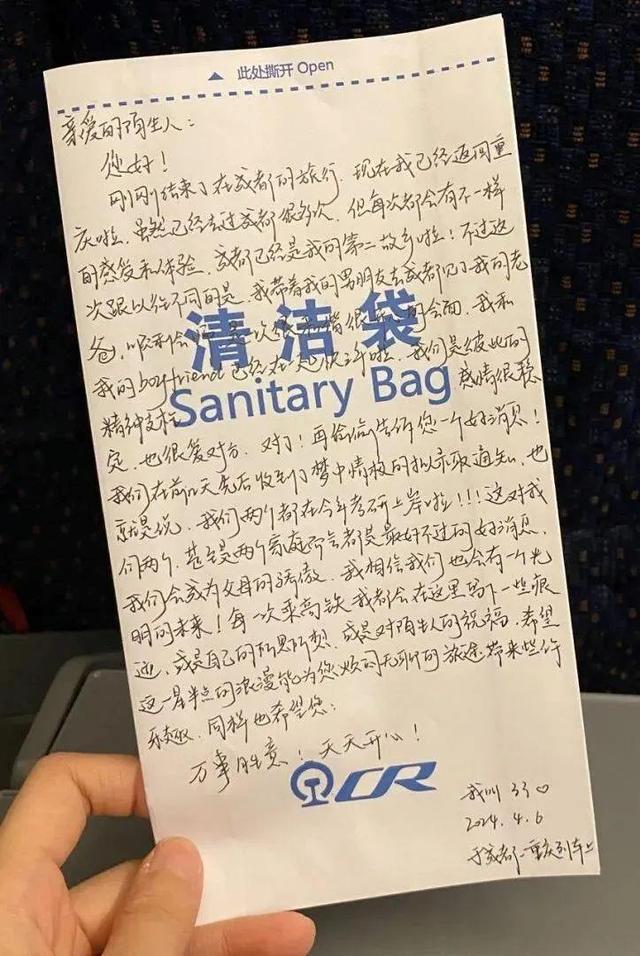 此处撕开 Open
亲爱的陌生人:
您好!
刚刚结束了在成都的旅行,现在我已经返回重
庆啦,虽然已经去过成都很多次,但每次都会有不一样
的感受和体验,成都已经是我的第二故乡啦!不过这
次跟以往不同的是,我带着我的男朋友去成都见了我的老
爸,顺利会 是一次很 很 的会面,我和
我的boyfriend已经在一起快三年啦,我们是彼此的
精神支柱 感情很稳
清洁袋
Sanitary Bag
定,也很爱对方,对了!再偷偷告诉您一个好消息!
我们在前几天先后收到了梦中情校的拟录取通知,也
就是说,我们两个都在今年考研上岸啦!!!这对我
们两个,甚至是两个家庭而言都是最好不过的好消息,
我们会成为父母的骄傲,我相信我们也会有一个光
明的未来!每一次乘高铁我都会在这里写下一些痕
迹,或是自己的所思所想,或是对陌生人的祝福,希望
这一星半点的浪漫能为您烦闷无聊的旅途带来些许
乐趣,同样也希望您:
万事胜意!天天开心!
CR
我叫 ♡
2024.4.6
于成都-重庆列车上